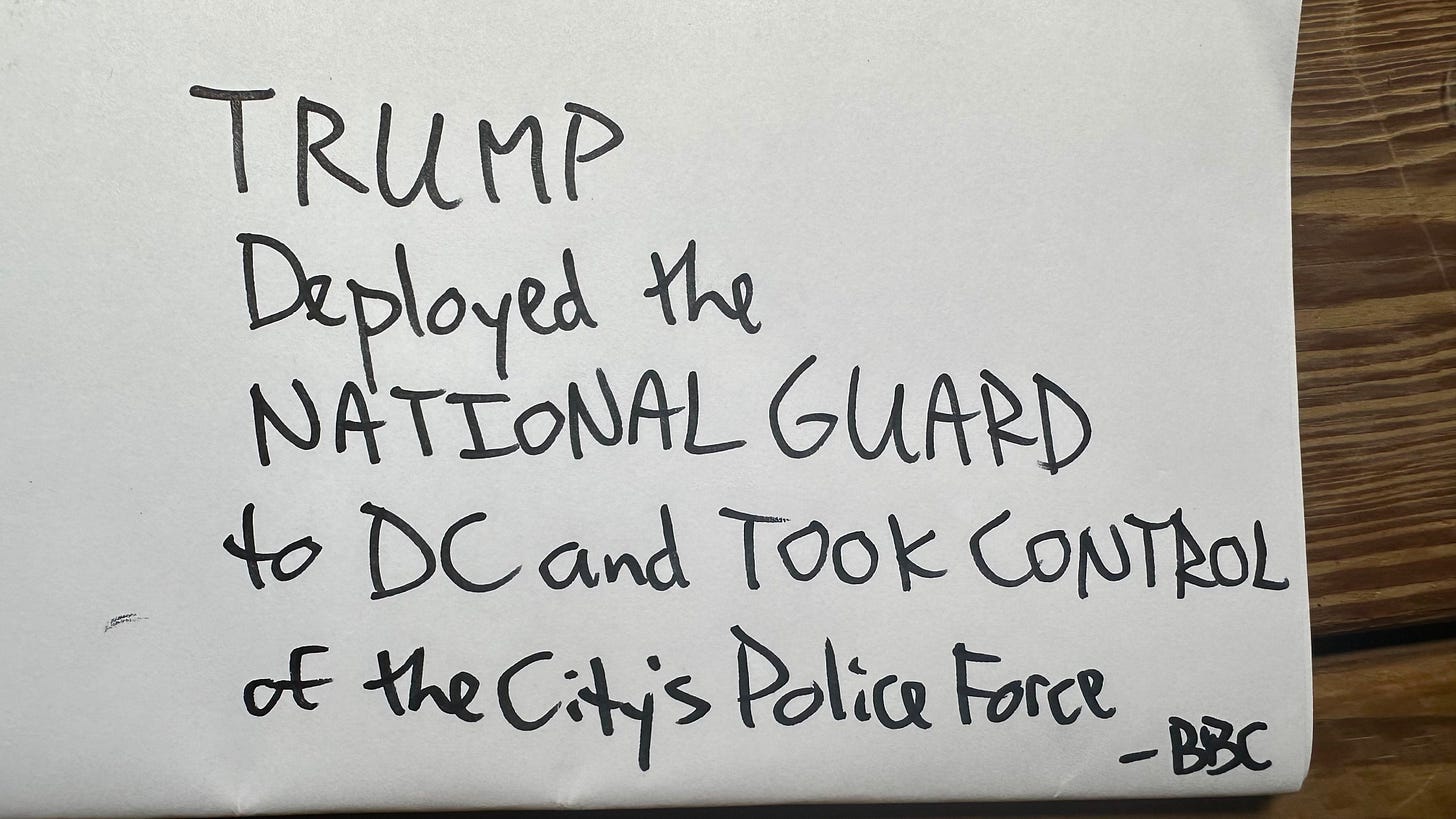 TRUMP
Deployed the
NATIONAL GUARD
to DC and TOOK CONTROL
of the City's Police Force
- BBC